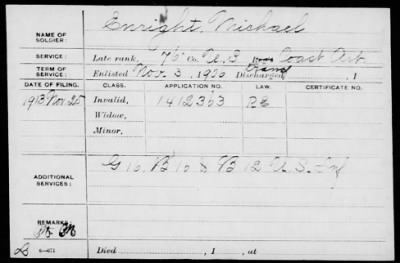 NAME OF SOLDIER: Enright, Michael
SERVICE: Late rank, 76 Co. U.S. Coast Art.
TERM OF SERVICE: Enlisted Nov. 3, 1920 Discharged , 1
DATE OF FILING. CLASS. APPLICATION NO. LAW. CERTIFICATE NO.
1913 Nov 25 Invalid, 1412363
Widow,
Minor,
ADDITIONAL SERVICES: G 10, B 10 & B 12 U.S. Inf
REMARKS:
Died , 1 , at